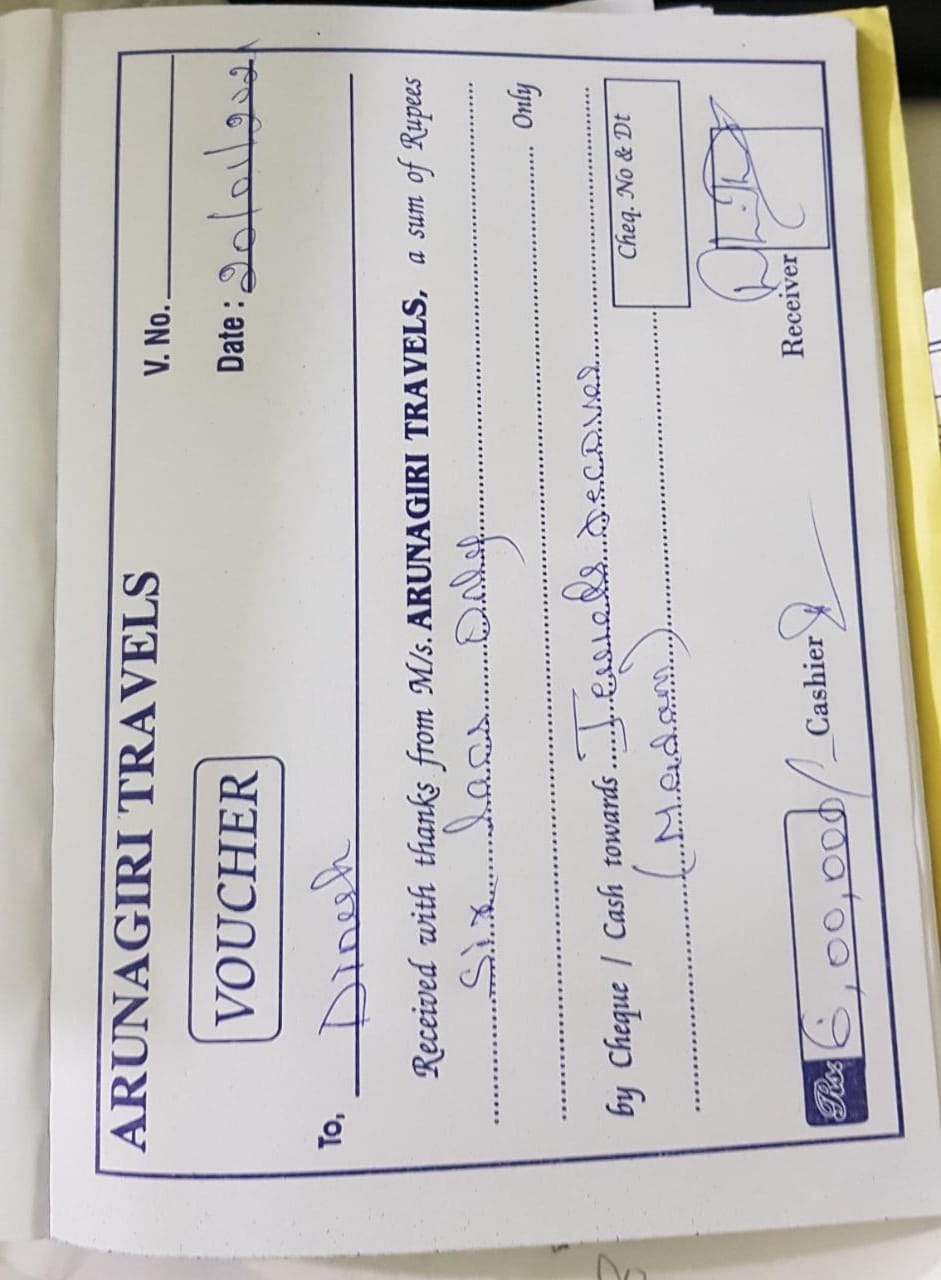 ARUNAGIRI TRAVELS
V. No.
VOUCHER
Date : 20/01/202
To, Dinesh
Received with thanks from M/s. ARUNAGIRI TRAVELS, a sum of Rupees
Six lacs only
Only
by Cheque / Cash towards
(Madam)
Cheq. No & Dt
Rs. 6,00,000/-
Cashier
Receiver